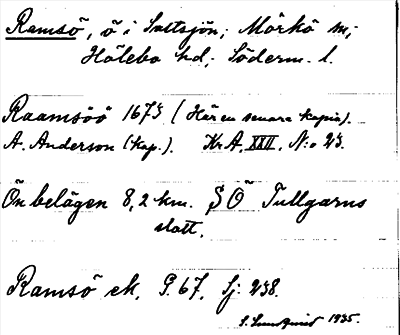 Ramsö, ö i Saltsjön; Mörkö sn;
Hölebo hd; Söderm. l.
Raamsöö 1673 (Här en senare kopia).
A. Anderson (kop.). Kr. A. XXII. N:o 23.
Ön belägen 8,2 km. SÖ Tullgarns
slott.
Ramsö ek. G. 67. Sj: 238.
S. Lundquist 1935.